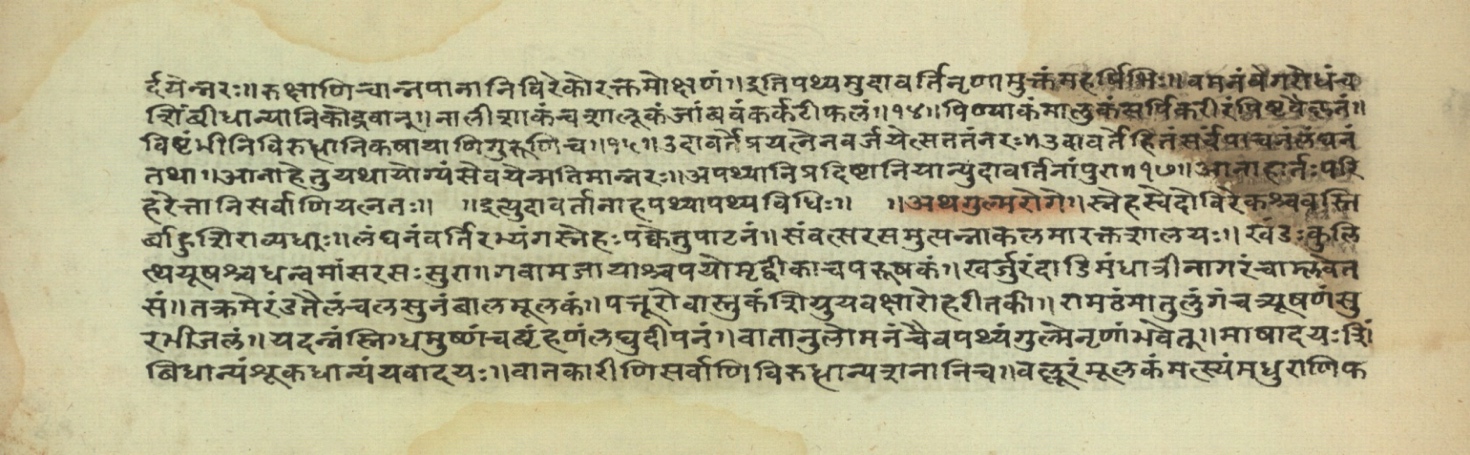 र्दयेन्नरः॥ रुक्षाणि चान्नपानानि विरेको रक्तमोक्षणं॥ इति पथ्यमुदावर्तिनृणामुक्तं महर्षिभिः॥ वमनं वेगरोधं च
शिंबीधान्यानि कोद्रवान्॥ नालीशाकं च शालूकं जांबवं कर्कटीफलं॥१४॥ पिण्याकमालुकं सर्पिकरीरं पिष्टवैकृतं॥
विष्टंभीनि विरुद्धानि कषायाणि गुरूणि च॥१५॥ उदावर्ते प्रयत्नेन वर्जयेत्सततं नरः॥ उदावर्ते हितं सर्वं पाचनं लंघनं
तथा॥ आनाहे तु यथायोग्यं सेवयेन्मतिमान्नरः॥ अपथ्यानि प्रदिष्टानि यान्युदावर्तिनां पुरा॥१७॥ आनाहार्तः परि
हरेत्तानि सर्वाणि यत्नतः॥ ॥इत्युदावर्तानाहपथ्यापथ्यविधिः॥ ॥अथ गुल्मरोगे॥ स्नेहस्वेदो विरेकश्च वस्ति
र्बाहुशिराव्यधाः॥ लंघनं वर्तिरभ्यंगस्नेहः पक्वे तु पाटनं॥ संवत्सरसमुत्पन्ना कलमा रक्तशालयः॥ खंडः कुलि
त्थयूषश्च धन्वमांसरसः सुरा॥ गवामजायाश्च पयो मृद्वीका च परूषकं॥ खर्जुरं दाडिमं धात्री नागरं चाम्लवेत
सं॥ तक्रमेरंडतैलं च लसुनं बालमूलकं॥ पत्तूरो वास्तुकं शिग्रु यवक्षारो हरीतकी॥ रामठं मातुलुंगं च त्र्यूषणं सु
रभीजलं॥ यदन्नं स्निग्धमुष्णं च बृंहणं लघु दीपनं॥ वातानुलोमनं चैव पथ्यं गुल्मे नृणां भवेत्॥ माषादयः शिं
बिधान्यं शूकधान्यं यवादयः॥ वातकारीणि सर्वाणि विरुद्धान्यशनानि च॥ वल्लूरं मूलकं मत्स्यं मधुराणि फ